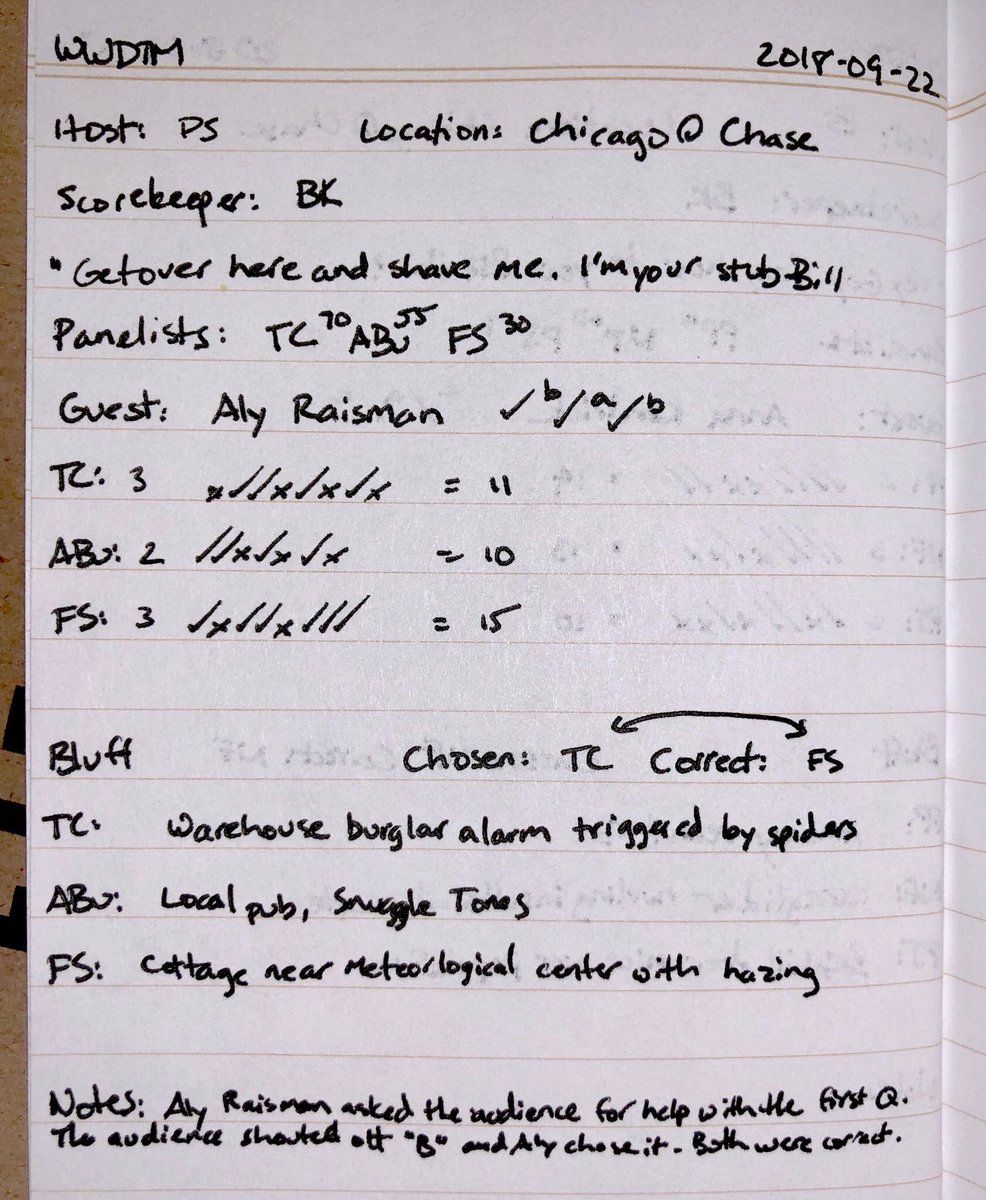 WWDTM 2018-09-22
Host: PS Location: Chicago @ Chase
Scorekeeper: BK
"Get over here and shave me. I'm your stub Bill
Panelists: TC 70 ABu 55 FS 30
Guest: Aly Raisman ✓ b ✓ a ✓ b
TC: 3 x✓✓x✓x✓x = 11
ABu: 2 ✓✓x✓x✓x = 10
FS: 3 ✓x✓✓x✓✓✓ = 15
Bluff Chosen: TC Correct: FS
TC: Warehouse burglar alarm triggered by spiders
ABu: Local pub, Snuggle Tones
FS: Cottage near Meteorlogical center with hazing
Notes: Aly Raisman asked the audience for help with the first Q.
The audience shouted off "B" and Aly chose it. Both were correct.